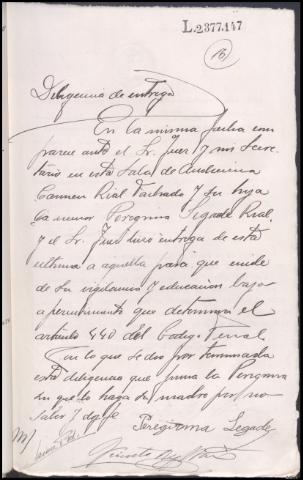 L.2377.147
16
Diligencia de entrega
En la misma fecha com
parece ante el Sr. Juez y mi Secre
tario en esta Sala de Audiencia
Carmen Rial Tachado y su hija
la menor Peregrina Segade Rial,
y el Sr. Juez hizo entrega de esta
ultima a aquella para que cuide
de su vigilancia y educacion bajo
apercibimiento que determina el
articulo 440 del Codigo Penal.
Con lo que se dio por terminada
esta diligencia que firma la Peregrina
sin que lo haga su madre por no
saber y doy fe
Peregrina Segade